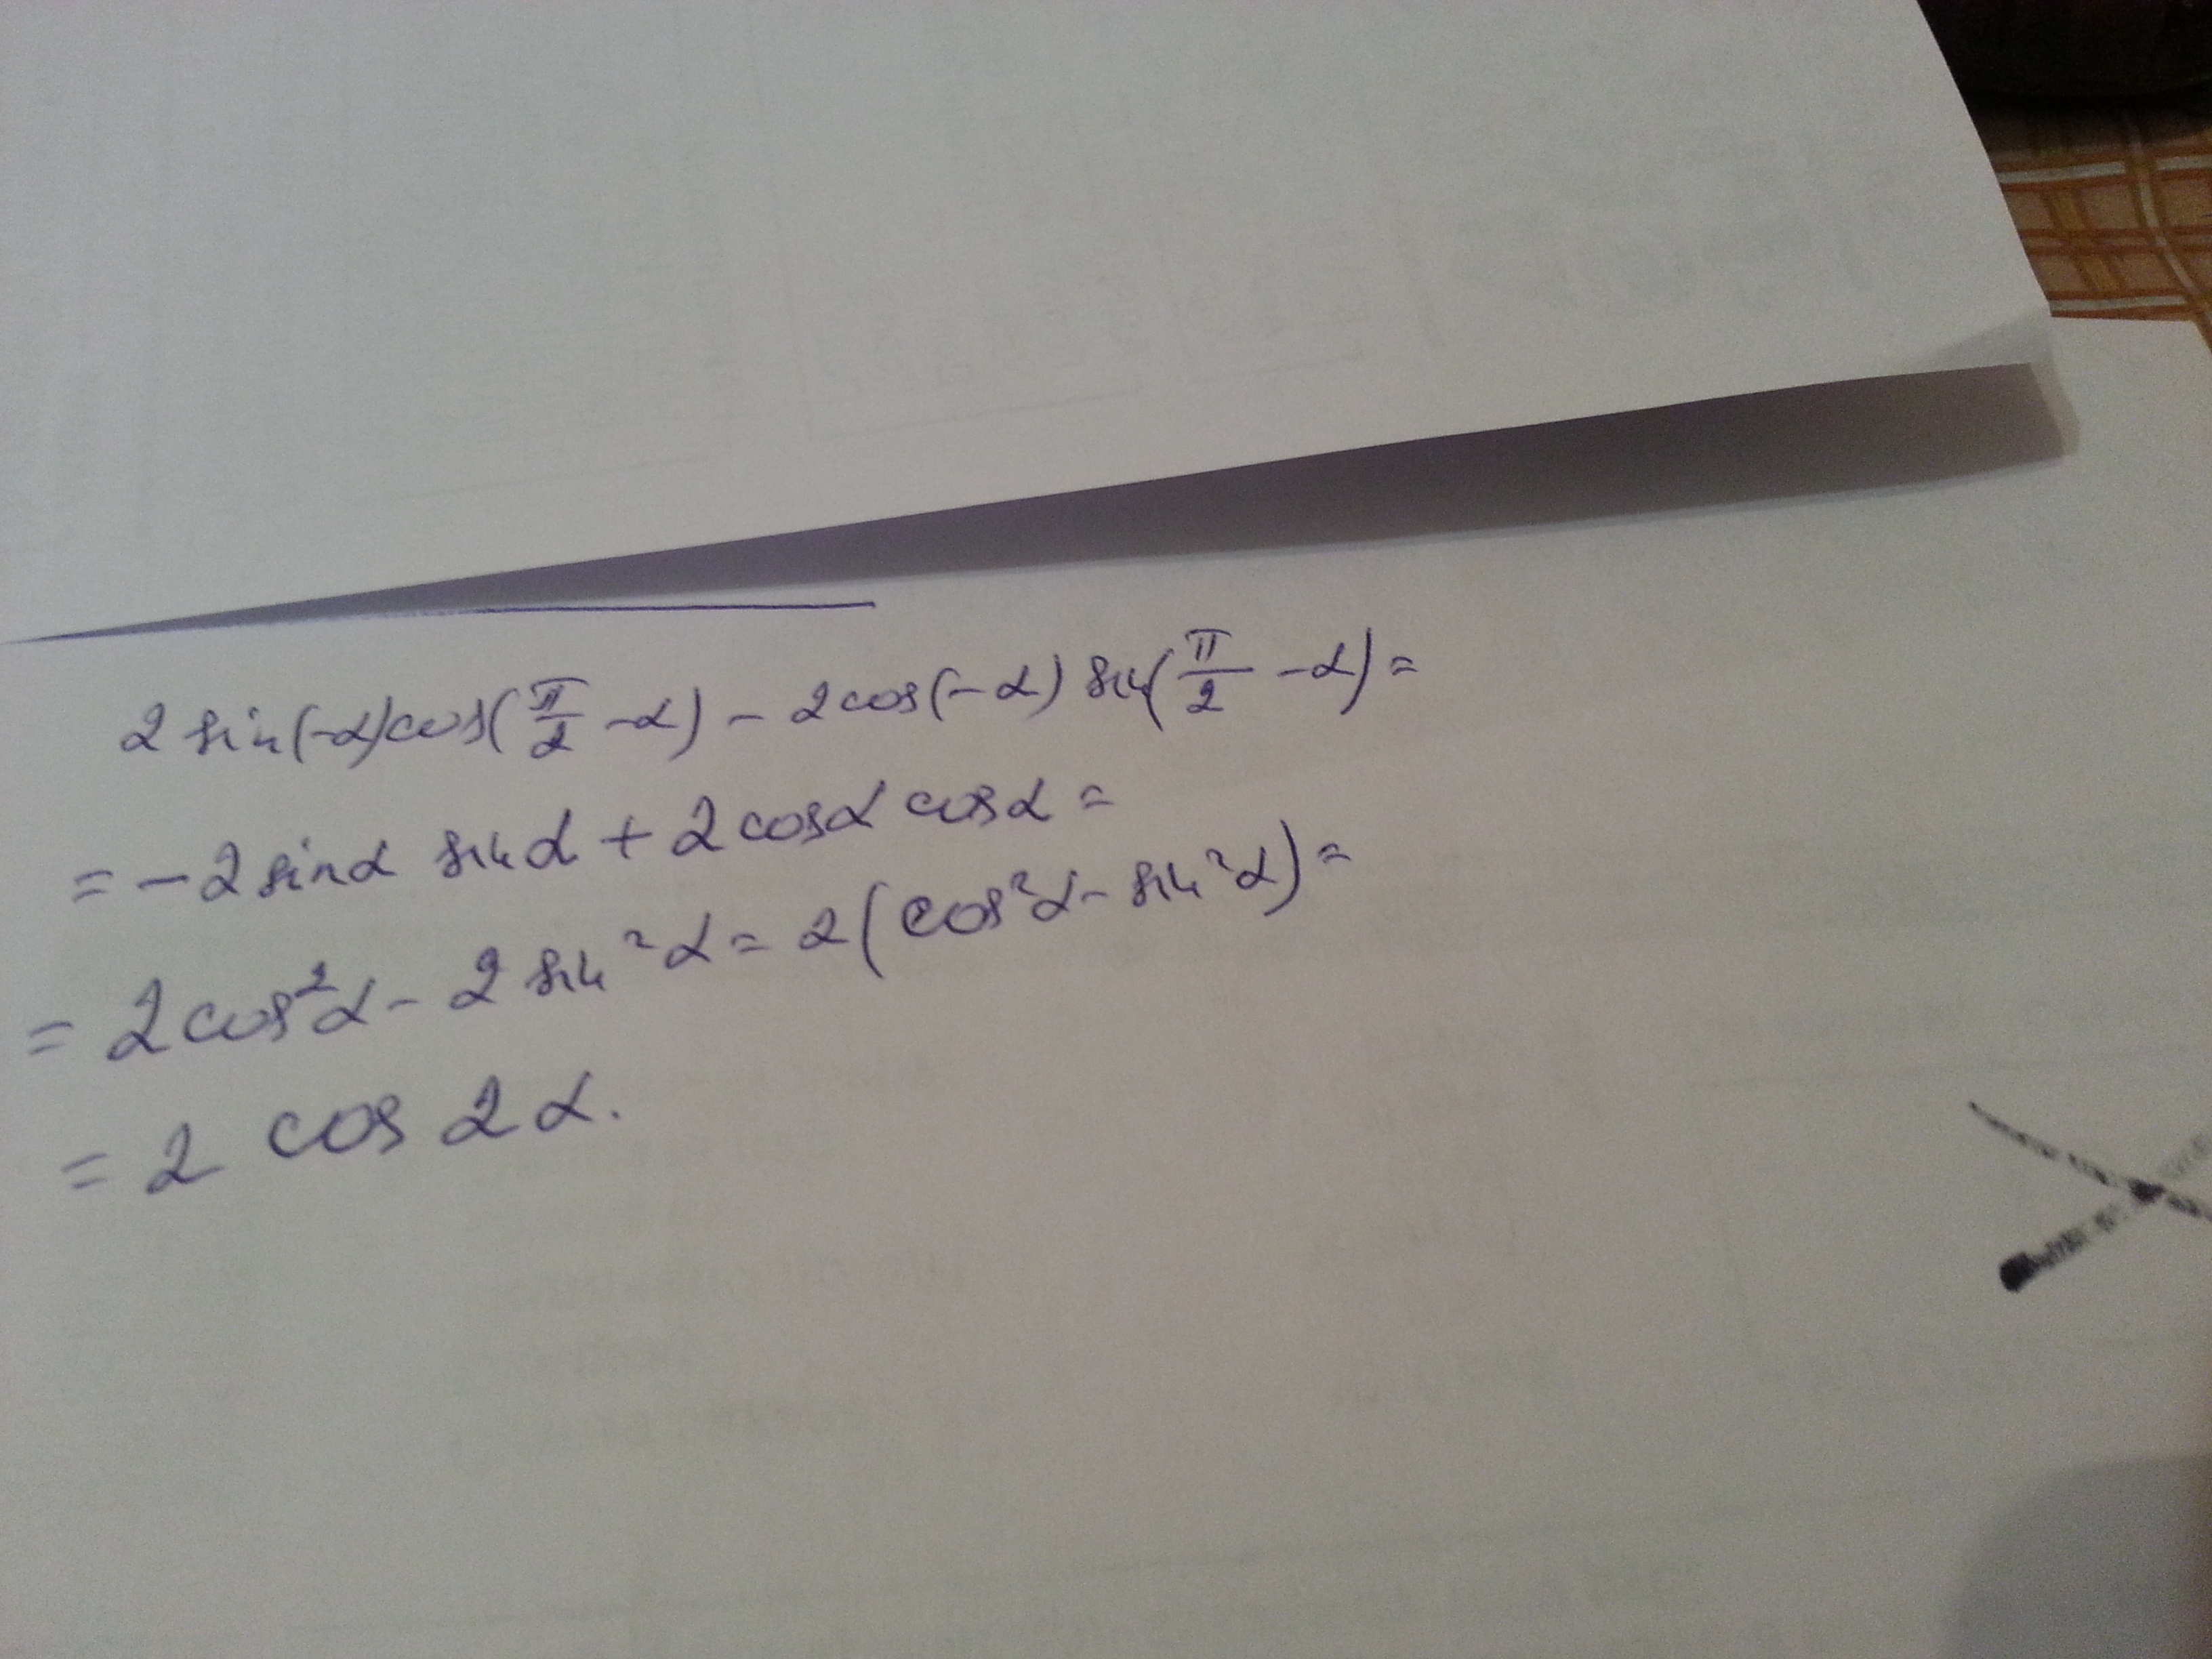 2 sin(-α)cos(π/2 -α) - 2cos(-α) sin(π/2 -α) =
= -2 sinα sinα + 2 cosα cosα =
= 2cos²α - 2 sin²α = 2(cos²α - sin²α) =
= 2 cos 2α.